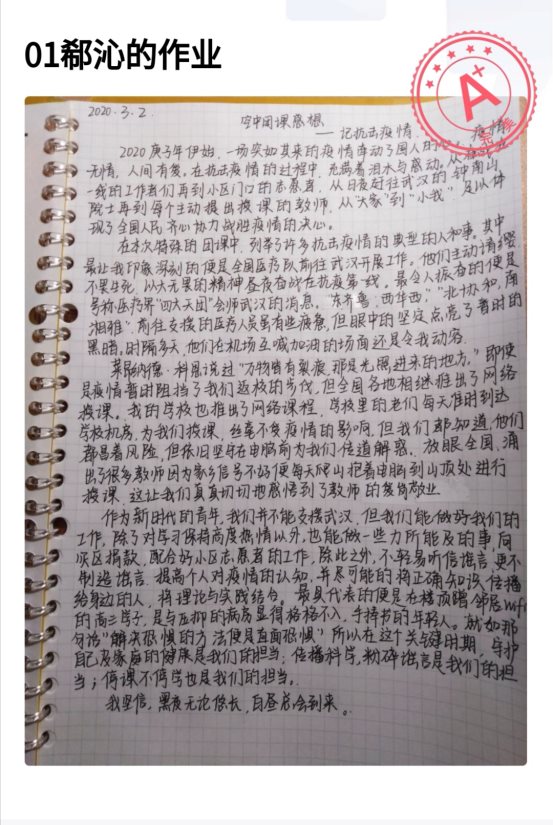 01郗沁的作业
A+
2020.3.2.
空中团课感想
——记抗击疫情
2020庚子年伊始,一场突如其来的疫情牵动了国人的心,疫情
无情,人间有爱,在抗击疫情的过程中,充满着泪水与感动。从
一线的工作者们再到小区门口的志愿者,从日夜赶往武汉的钟南山
院士再到每个主动提出授课的教师,从“大家”到“小我”足以体
现了全国人民齐心协力战胜疫情的决心。
在本次特殊的团课中,列举了许多抗击疫情的典型的人和事,其中
最让我印象深刻的便是全国医疗队前往武汉开展工作。他们主动请缨
不畏生死,以大无畏的精神昼夜奋战在抗疫第一线。最令人振奋的便是
号称医疗界“四大天团”会师武汉的消息。“东齐鲁,西华西”“北协和,南
湘雅”前往支援的医疗人员虽有些疲惫,但眼中的坚定点亮了暂时的
黑暗。时隔多天,他们在机场互喊加油的场面还是令我动容。
莱昂纳德·科恩说过“万物皆有裂痕,那是光照进来的地方。”即使
是疫情暂时阻挡了我们返校的步伐,但全国各地相继推出了网络
授课。我的学校也推出了网络课程,学校里的老们每天准时到达
学校机房,为我们授课,丝毫不受疫情的影响,但我们都知道,他们
都冒着风险,但依旧坚守在电脑前为我们传道解惑。放眼全国,涌
出了很多教师因为家乡信号不好便每天爬山抱着电脑到山顶处进行
授课,这让我们真真切切地感悟到了教师的爱岗敬业。
作为新时代的青年,我们并不能支援武汉,但我们能做好我们的
工作,除了对学习保持高度热情以外,也能做一些力所能及的事向
灾区捐款,配合好小区志愿者的工作,除此之外,不轻易听信谣言,更不
制造谣言,提高个人对疫情的认知,并尽可能的将正确知识传播
给身边的人,将理论与实践结合。最具代表的便是在楼顶蹭邻居wifi
的高三学子,是与压抑的病房显得格格不入,手捧书的年轻人。就如那
句话“解决恐惧的方法便是直面恐惧”所以在这个关键时期,守护
自己及家庭的健康是我们的担当;传播科学,粉碎谣言是我们的担
当;停课不停学也是我们的担当。
我坚信,黑夜无论悠长,白昼总会到来。